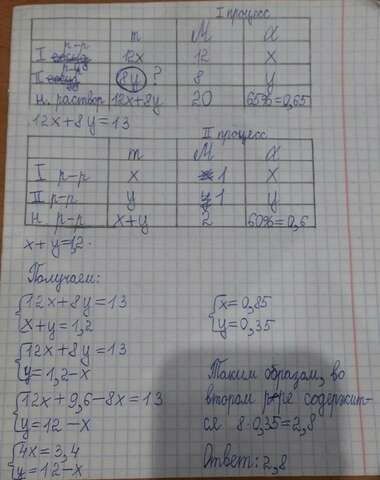 I процесс
m M α
I р-р 12x 12 x
II р-р 8y ? 8 y
н. раствор 12x+8y 20 65%=0,65
12x+8y=13
II процесс
m M α
I р-р x 1 x
II р-р y 1 y
н. р-р x+y 2 60%=0,6
x+y=1,2.
Получаем:
{12x+8y=13
x+y=1,2
{12x+8y=13
y=1,2-x
{12x+9,6-8x=13
y=12-x
{4x=3,4
y=12-x
{x=0,85
y=0,35
Таким образом, во
втором р-ре содержит-
ся 8·0,35=2,8
Ответ: 2,8